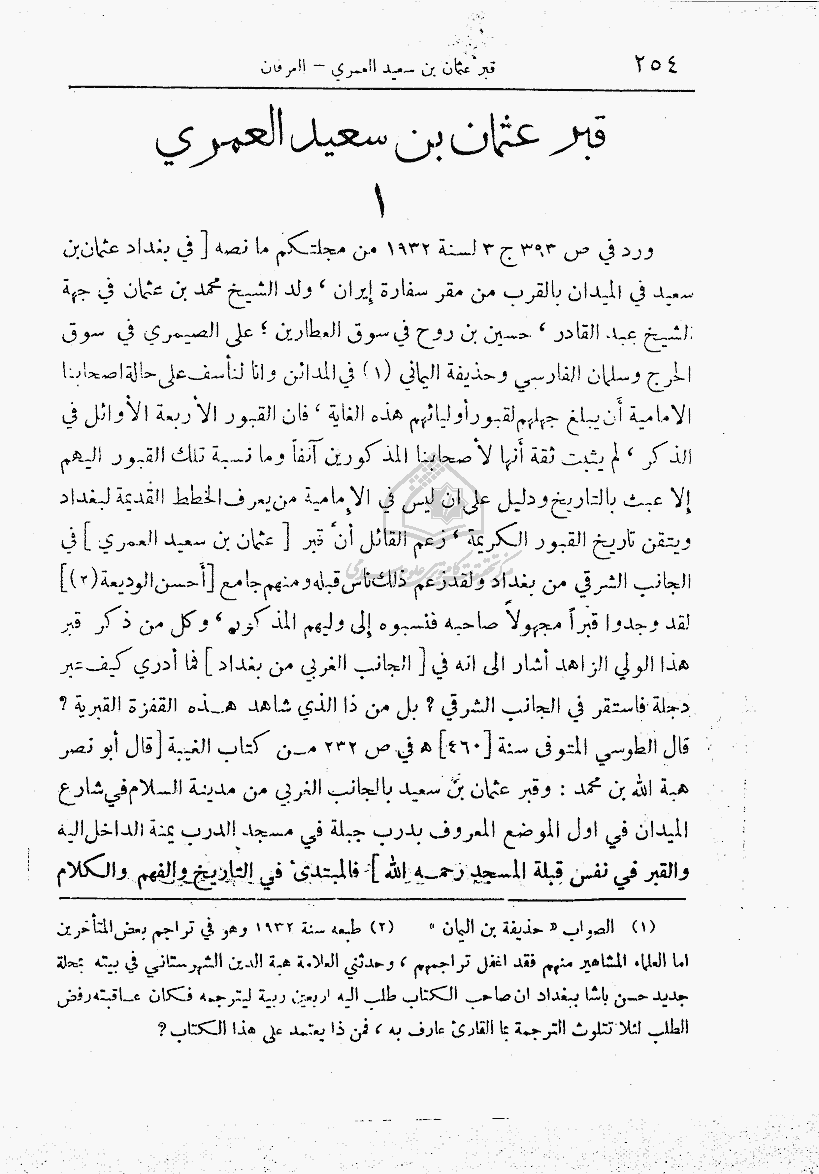 ٢٥٤
قبر عثمان بن سعيد العمري – العرفان
قبر عثمان بن سعيد العمري
١
ورد في ص ٣٩٣ ج ٣ لسنة ١٩٣٢ من مجلتكم ما نصه [ في بغداد عثمان بن
سعيد في الميدان بالقرب من مقر سفارة إيران ، ولد الشيخ محمد بن عثمان في جهة
الشيخ عبد القادر ، حسين بن روح في سوق العطارين ؛ على الصيمري في سوق
الهرج وسلمان الفارسي وحذيفة اليماني (١) في المدائن وانا لنأسف على حالة اصحابنا
الامامية أن يبلغ جهلهم لقبور أوليائهم هذه الغاية ، فان القبور الأربعة الأوائل في
الذكر ، لم يثبت ثقة أنها لأصحابنا المذكورين آنفاً وما نسبة تلك القبور اليهم
إلا عبث بالتاريخ ودليل على ان ليس في الإمامية من يعرف الخطط القديمة لبغداد
ويتقن تاريخ القبور الكريمة ، زعم القائل أن قبر [ عثمان بن سعيد العمري ] في
الجانب الشرقي من بغداد ولقد زعم ذلك ناس قبله ومنهم جامع [أحسن الوديعة (٢)]
لقد وجدوا قبراً مجهولاً صاحبه فنسبوه إلى وليهم المذكور ، وكل من ذكر قبر
هذا الولي الزاهد أشار الى انه في [ الجانب الغربي من بغداد ] فما أدري كيف عبر
دجلة فاستقر في الجانب الشرقي ? بل من ذا الذي شاهد هـذه القفزة القبرية ?
قال الطوسي المتوفى سنة [٤٦٠] هـ في ص ٢٣٢ مـن كتاب الغيبة [ قال أبو نصر
هبة الله بن محمد : وقبر عثمان بن سعيد بالجانب الغربي من مدينة السلام في شارع
الميدان في اول الموضع المعروف بدرب جبلة في مسجد الدرب يمنة الداخل اليه
والقبر في نفس قبلة المسجد رحمـه الله ] فالمبتدئ في التاريخ والفهم والكلام
(١) الصواب « حذيفة بن اليمان » (٢) طبعه سنة ١٩٣٢ وهو في تراجم بعض المتأخرين
اما العلماء المشاهير منهم فقد اغفل تراجمهم ، وحدثني العلامة هبة الدين الشهرستاني في بيته بمحلة
جديد حسن باشا ببغداد ان صاحب الكتاب طلب اليه اربعين ربية ليترجمه فكان عاقبته رفض
الطلب لئلا تتلوث الترجمة بما القارئ عارف به ، فمن ذا يعتمد على هذا الكتاب ?